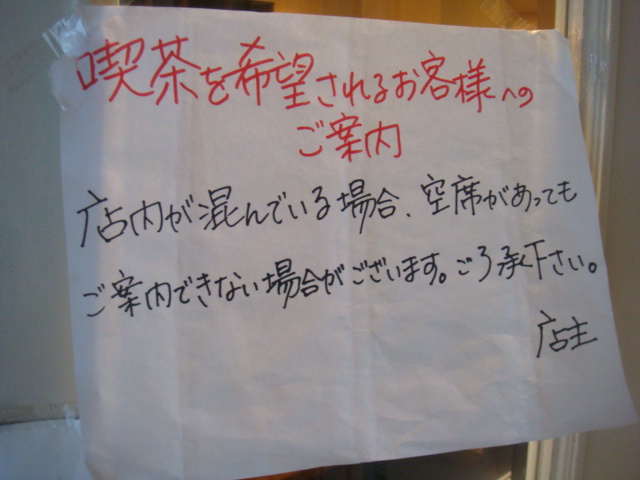 喫茶を希望されるお客様への
ご案内
店内が混んでいる場合、空席があっても
ご案内できない場合がございます。ご了承下さい。
店主